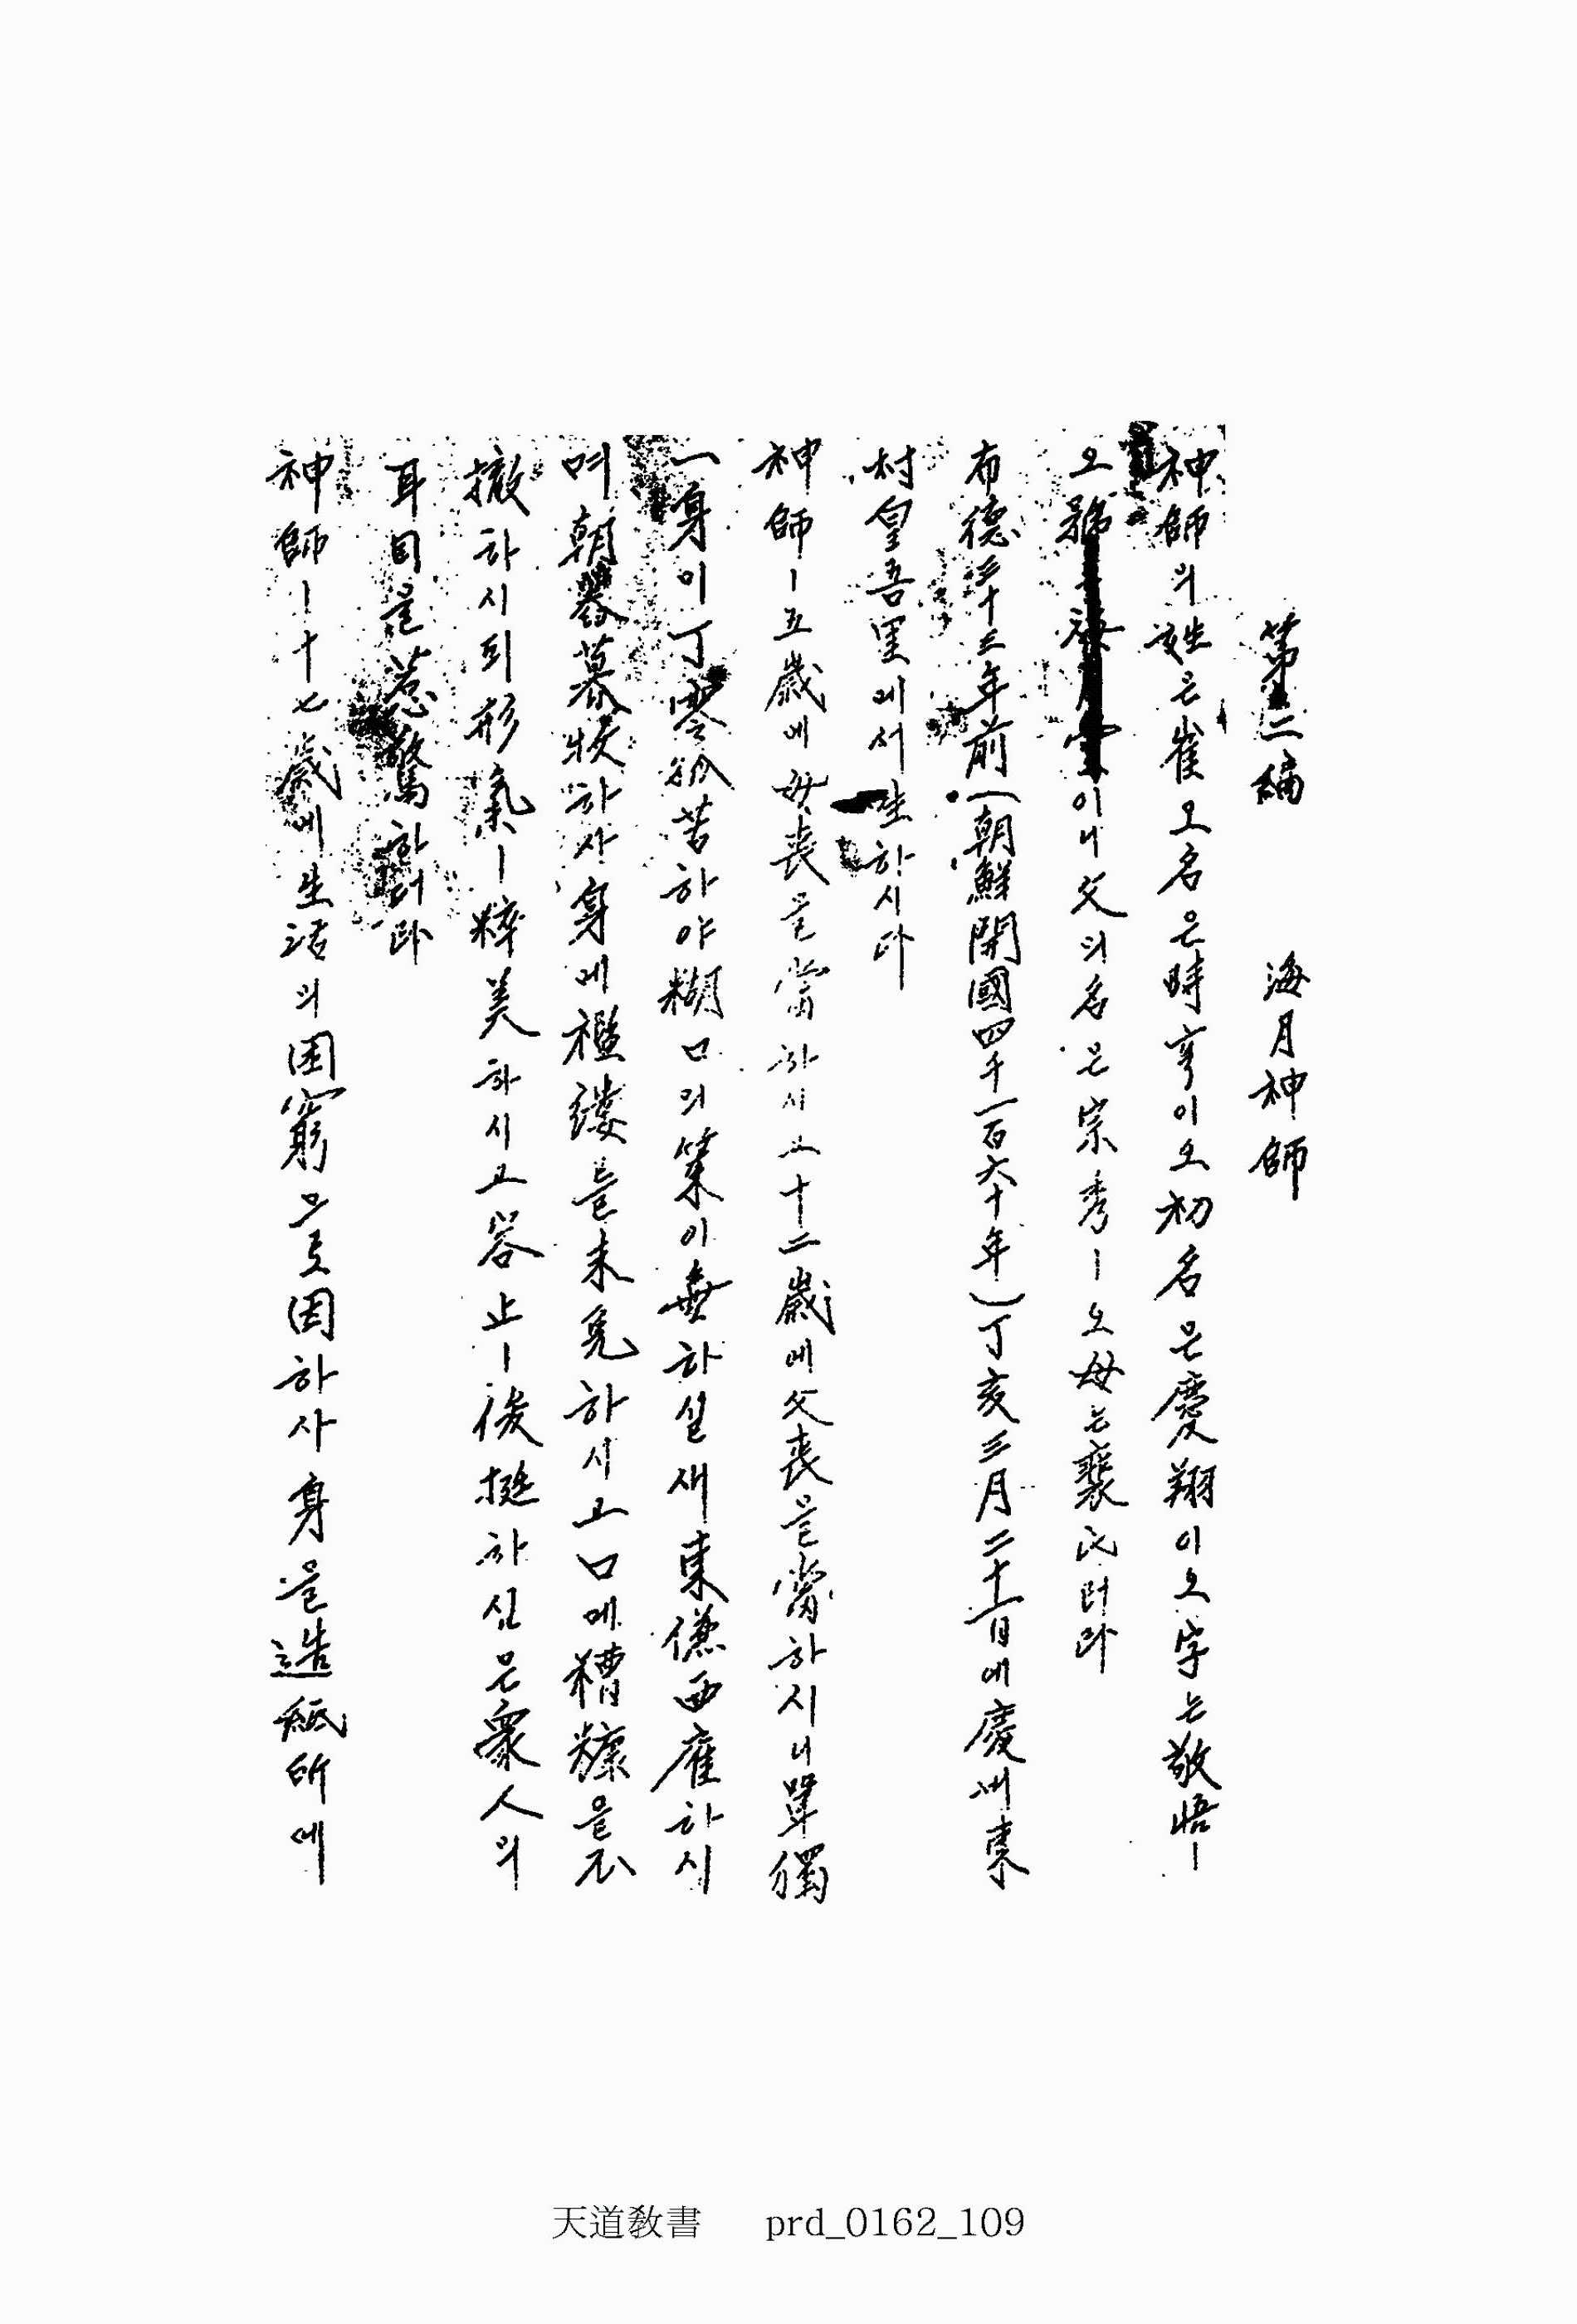 第二編 海月神師
神師의 姓은 崔오 名은 時亨이오 初名은 慶翔이오 字는 敬悟ㅣ
오 號 海月堂이니 父의 名은 宗秀ㅣ오 母는 裵氏러라
布德三十三年前(朝鮮開國四千一百六十年)丁亥三月二十一日에 慶州東
村皇吾里에서 生하시다
神師ㅣ 五歲에 母喪을 當하시고 十二歲에 父喪을 當하시니 單獨
一身이 丁零孤苦하야 糊口의 策이 無하실새 東傭西雇하시
며 朝暮하사 身에 襤褸를 未免하시고 口에 糟糠을 不
撤하시되 形氣ㅣ 粹美하시고 容止ㅣ 俊挺하심은 衆人의
耳目을 惹驚하더라
神師ㅣ 十七歲에 生活의 困窮으로 因하사 身을 造紙所에
天道敎書 prd_0162_109